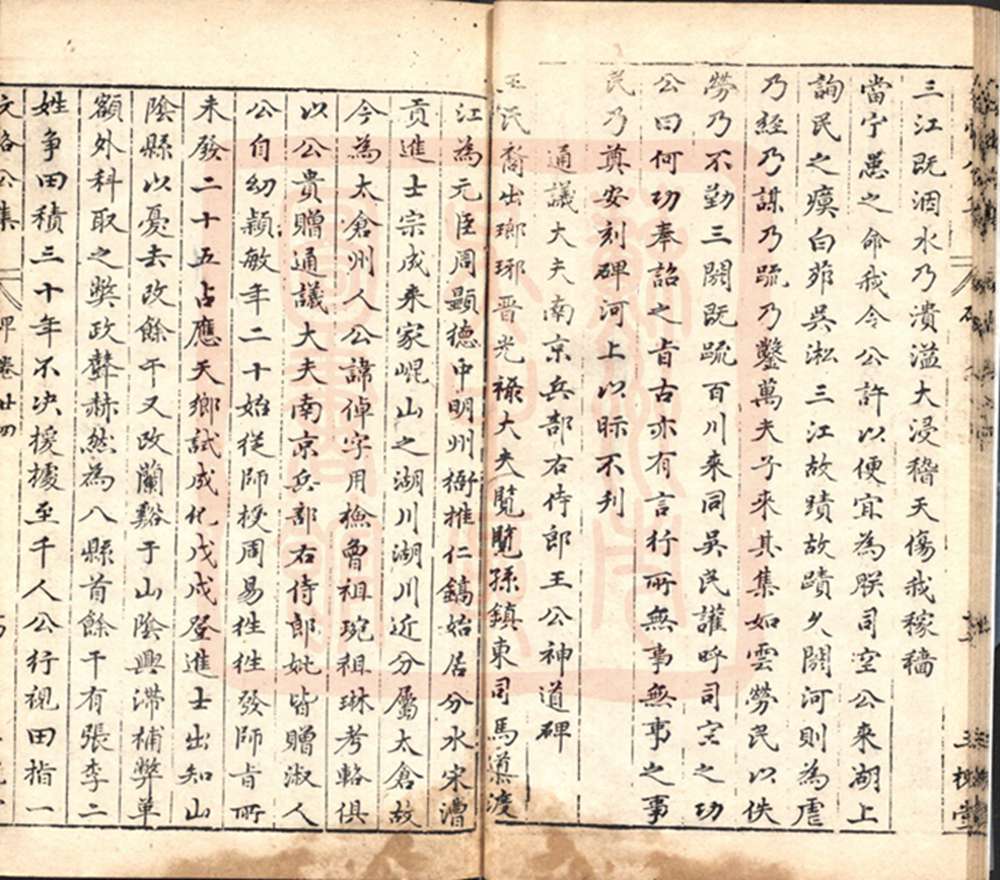 三江既涸水乃潰溢大浸稽天傷我稼穡
當宁愚之命我令公許以便宜為朕司空公來湖上
詢民之瘼白茆吳淞三江故蹟故蹟久闕河則為虐
乃經乃謀乃疏乃鑿萬夫子來其集如雲勞民以佚
勞乃不勤三閼既疏百川來同吳民讙呼司空之功
公曰何功奉詔之旨古亦有言行所無事無事之事
民乃奠安刻碑河上以眎不刋
通議大夫南京兵部右侍郎王公神道碑
王氏裔出瑯琊晋光祿大夫覽覽孫鎮東司馬導渡
江為元臣周顯德中明州衙推仁鎬始居分水宋漕
貢進士宗成來家崐山之湖川湖川近分屬太倉故
今為太倉州人公諱倬字用檢曾祖琬祖琳考輅俱
以公貴贈通議大夫南京兵部右侍郎妣皆贈淑人
公自幼穎敏年二十始從師授周易徃徃發師旨所
未發二十五占應天鄉試成化戊戌登進士出知山
陰縣以憂去改餘干又改蘭谿于山陰興滯補弊革
額外科取之獘政聲赫然為八縣首餘干有張李二
姓争田積三十年不决援據至千人公行視田指一
文恪公集
卷廿四
三槐堂